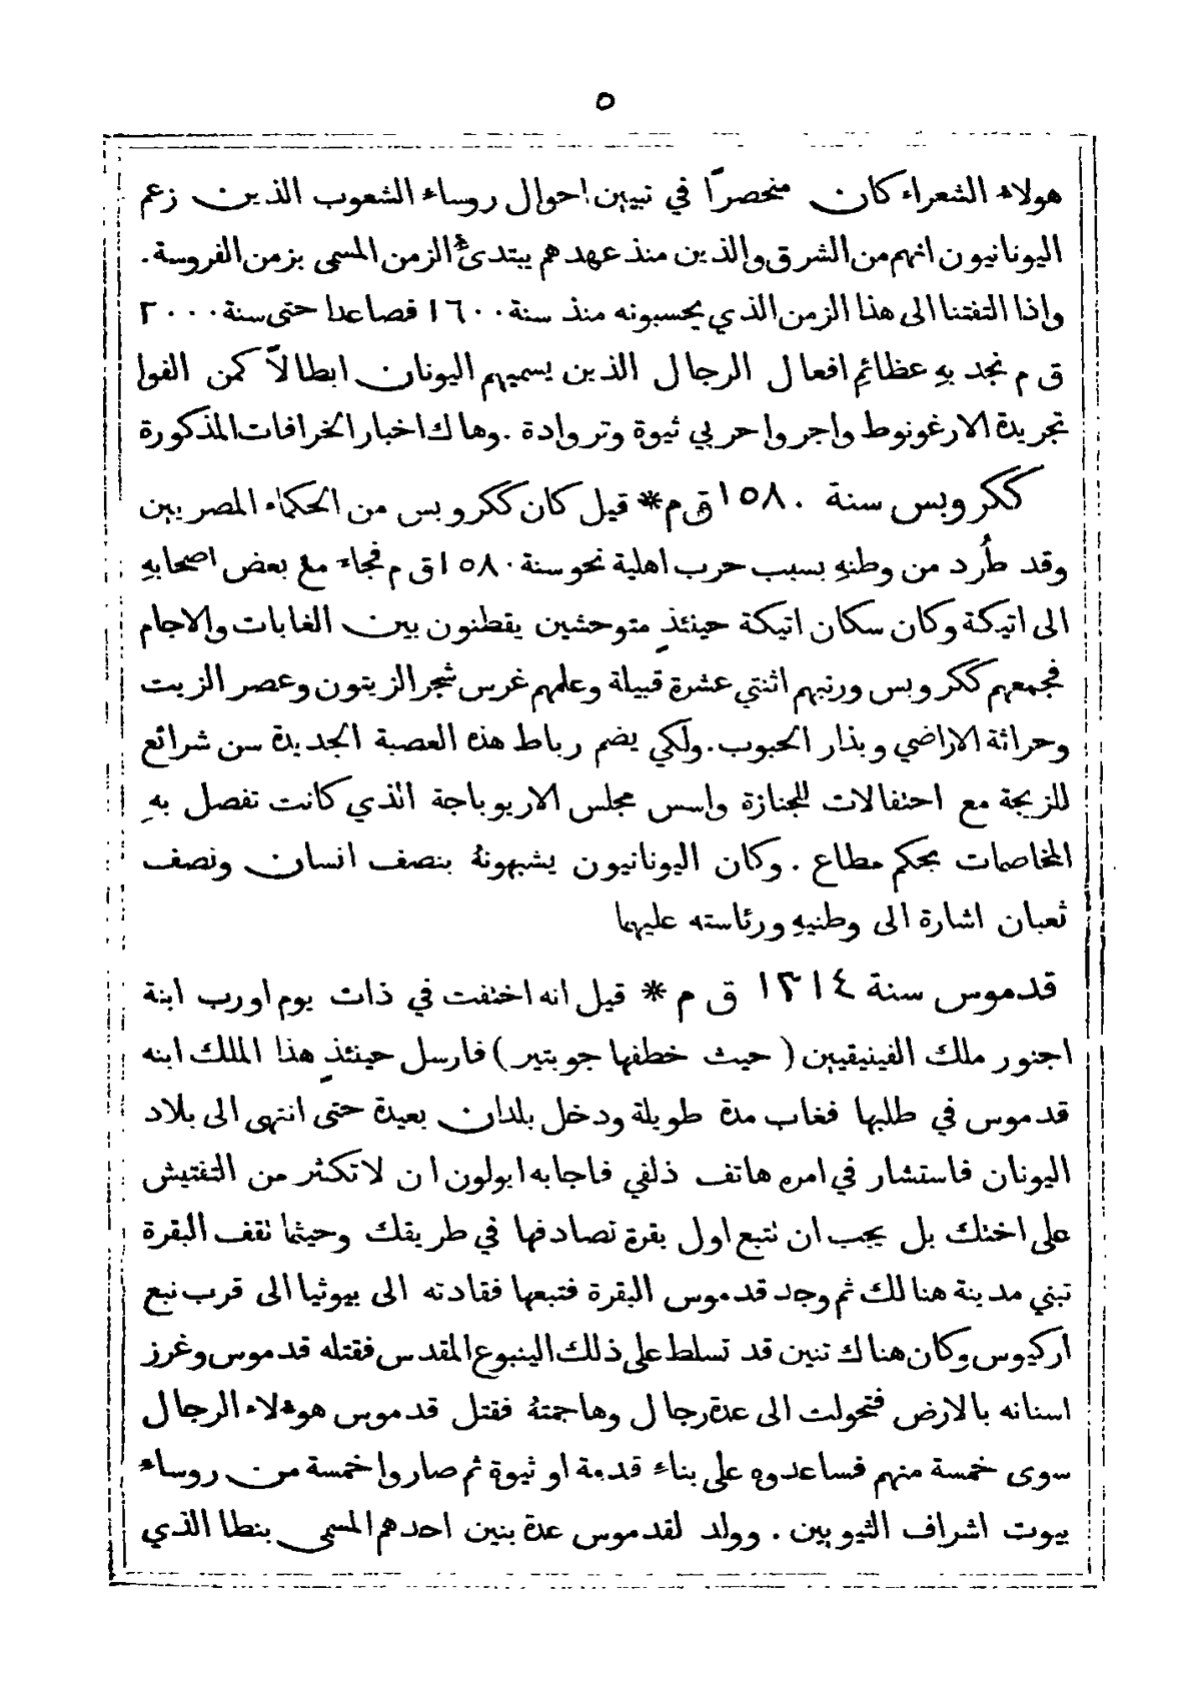 ٥
هولاء الشعراء كان منحصرًا في تبيين احوال روساء الشعوب الذين زعم
اليونانيون انهم من الشرق والذين منذ عهدهم يبتدئُ الزمن المسمى بزمن الفروسة.
واذا التفتنا الى هذا الزمن الذي يحسبونه منذ سنة ١٦٠٠ فصاعدا حتى سنة ٢٠٠٠
ق م نجد بهِ عظائمِ افعال الرجال الذين يسميهم اليونان ابطالاً كمن الفوا
تجريدة الارغونوط واجروا حربي ثيوة وتروادة . وهاك اخبار الخرافات المذكورة
ككروبس سنة ١٥٨٠ ق م * قيل كان ككروبس من الحكماء المصريين
وقد طُرد من وطنهِ بسبب حرب اهلية نحو سنة ١٥٨٠ ق م فجاء مع بعض اصحابهِ
الى اتيكة وكان سكان اتيكة حينئذٍ متوحشين يقطنون بين الغابات والاجام
فجمعهم ككروبس ورتبهم اثنتي عشرة قبيلة وعلمهم غرس شجر الزيتون وعصر الزيت
وحراثة الاراضي وبذار الحبوب. ولكي يضم رباط هذه العصبة الجديدة سن شرائع
للزيجة مع احتفالات للجنازة واسس مجلس الاريوباجة الذي كانت تفصل بهِ
المخاصمات بحكم مطاع . وكان اليونانيون يشبهونهُ بنصف انسان ونصف
ثعبان اشارة الى وطنيهِ ورئاسته عليهما
قدموس سنة ١٣١٤ ق م * قيل انه اختفت في ذات يوم اورب ابنة
اجنور ملك الفينيقيين ( حيث خطفها جوبتير ) فارسل حينئذٍ هذا الملك ابنه
قدموس في طلبها فغاب مدة طويلة ودخل بلدان بعيدة حتى انتهى الى بلاد
اليونان فاستشار في امره هاتف ذلفي فاجابه ابولون ان لا تكثر من التفتيش
على اختك بل يجب ان تتبع اول بقرة تصادفها في طريقك وحيثما تقف البقرة
تبني مدينة هنالك ثم وجد قدموس البقرة فتبعها فقادته الى بيوثيا الى قرب نبع
اركيوس وكان هناك تنين قد تسلط على ذلك الينبوع المقدس فقتله قدموس وغرز
اسنانه بالارض فتحولت الى عدة رجال وهاجمتهُ فقتل قدموس هوءلاء الرجال
سوى خمسة منهم فساعدوه على بناء قدمة او ثيوة ثم صاروا خمسة من روساء
بيوت اشراف الثيوبين . وولد لقدموس عدة بنين احدهم المسمى بنطا الذي